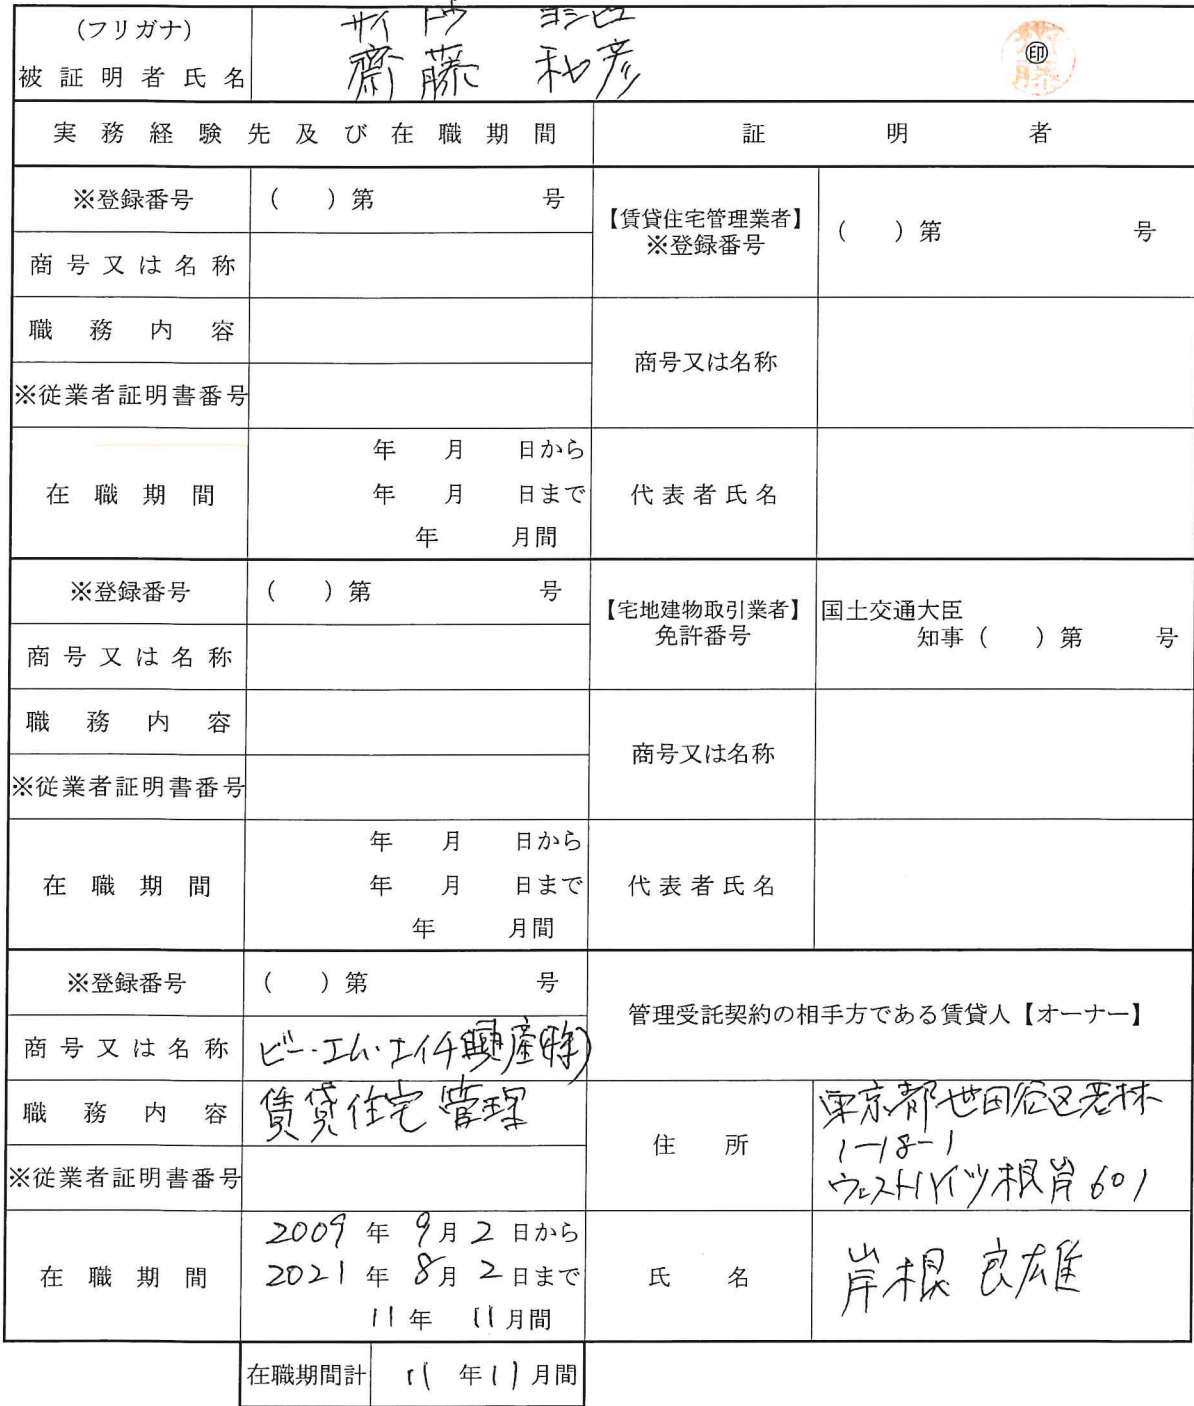 (フリガナ) サイトウ ヨシヒコ
被証明者氏名 齋藤 和彦 ㊞
実務経験先及び在職期間 証明者
※登録番号 ( )第 号 【賃貸住宅管理業者】 ※登録番号 ( )第 号
商号又は名称
職務内容 商号又は名称
※従業者証明書番号
在職期間 年 月 日から 代表者氏名
年 月 日まで
年 月間
※登録番号 ( )第 号 【宅地建物取引業者】 免許番号 国土交通大臣
知事( )第 号
商号又は名称
職務内容 商号又は名称
※従業者証明書番号
在職期間 年 月 日から 代表者氏名
年 月 日まで
年 月間
※登録番号 ( )第 号 管理受託契約の相手方である賃貸人【オーナー】
商号又は名称 ビー・エム・エイチ興産(株)
職務内容 賃貸住宅管理 住所 東京都世田谷区若林
1-18-1
ウェストハイツ根岸601
※従業者証明書番号
在職期間 2009年9月2日から 氏名 岸根 良雄
2021年8月2日まで
11年 11月間
在職期間計 11年11月間